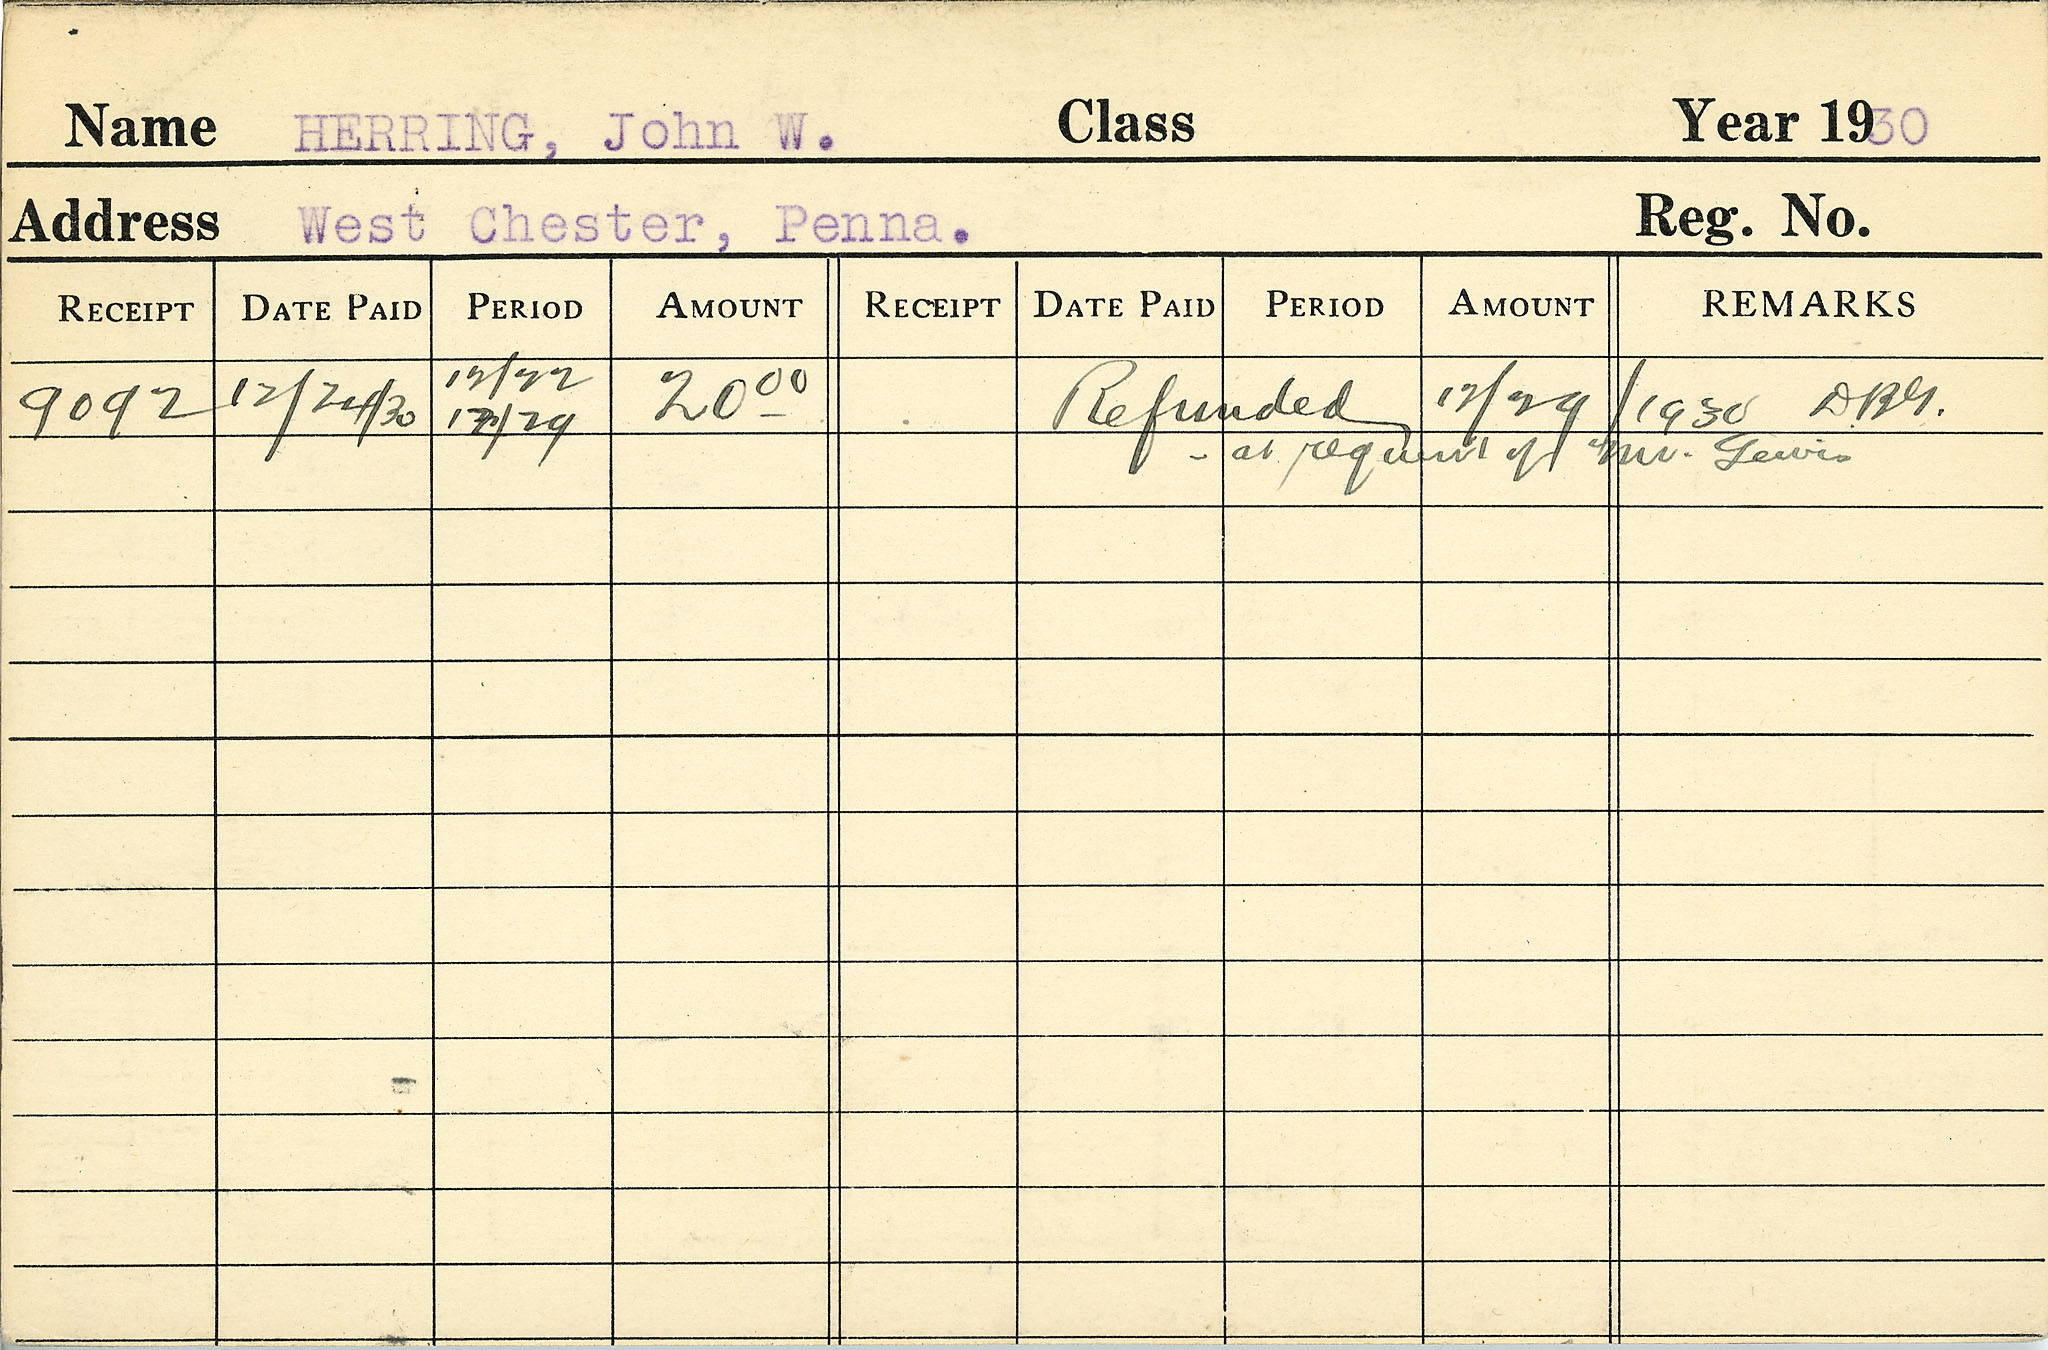 Name HERRING, John W. Class Year 1930
Address West Chester, Penna. Reg. No.
RECEIPT DATE PAID PERIOD AMOUNT RECEIPT DATE PAID PERIOD AMOUNT REMARKS
12/22
9092 12/24/30 20 00 Refunded 12/29/1930
12/29
- at request of Mr. Lewis